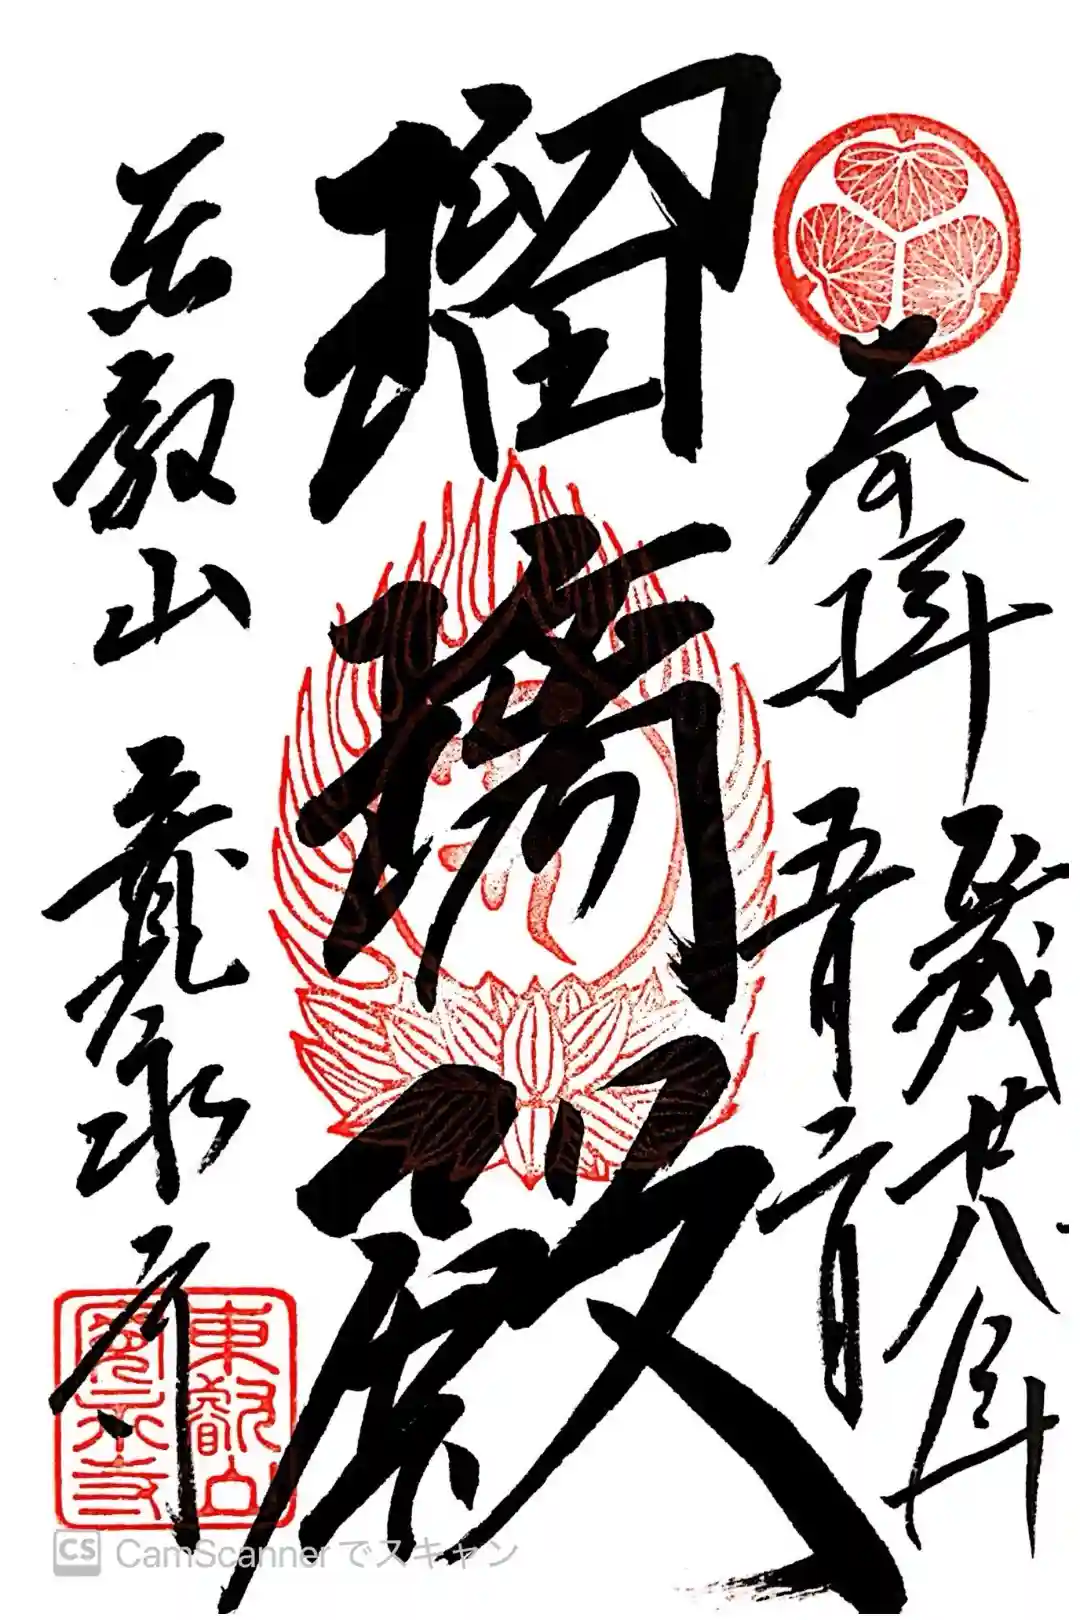 奉拝
成廿八年
五月二日
瑠璃殿
東叡山 寛永寺
東叡山
寛永寺
CS CamScannerでスキャン